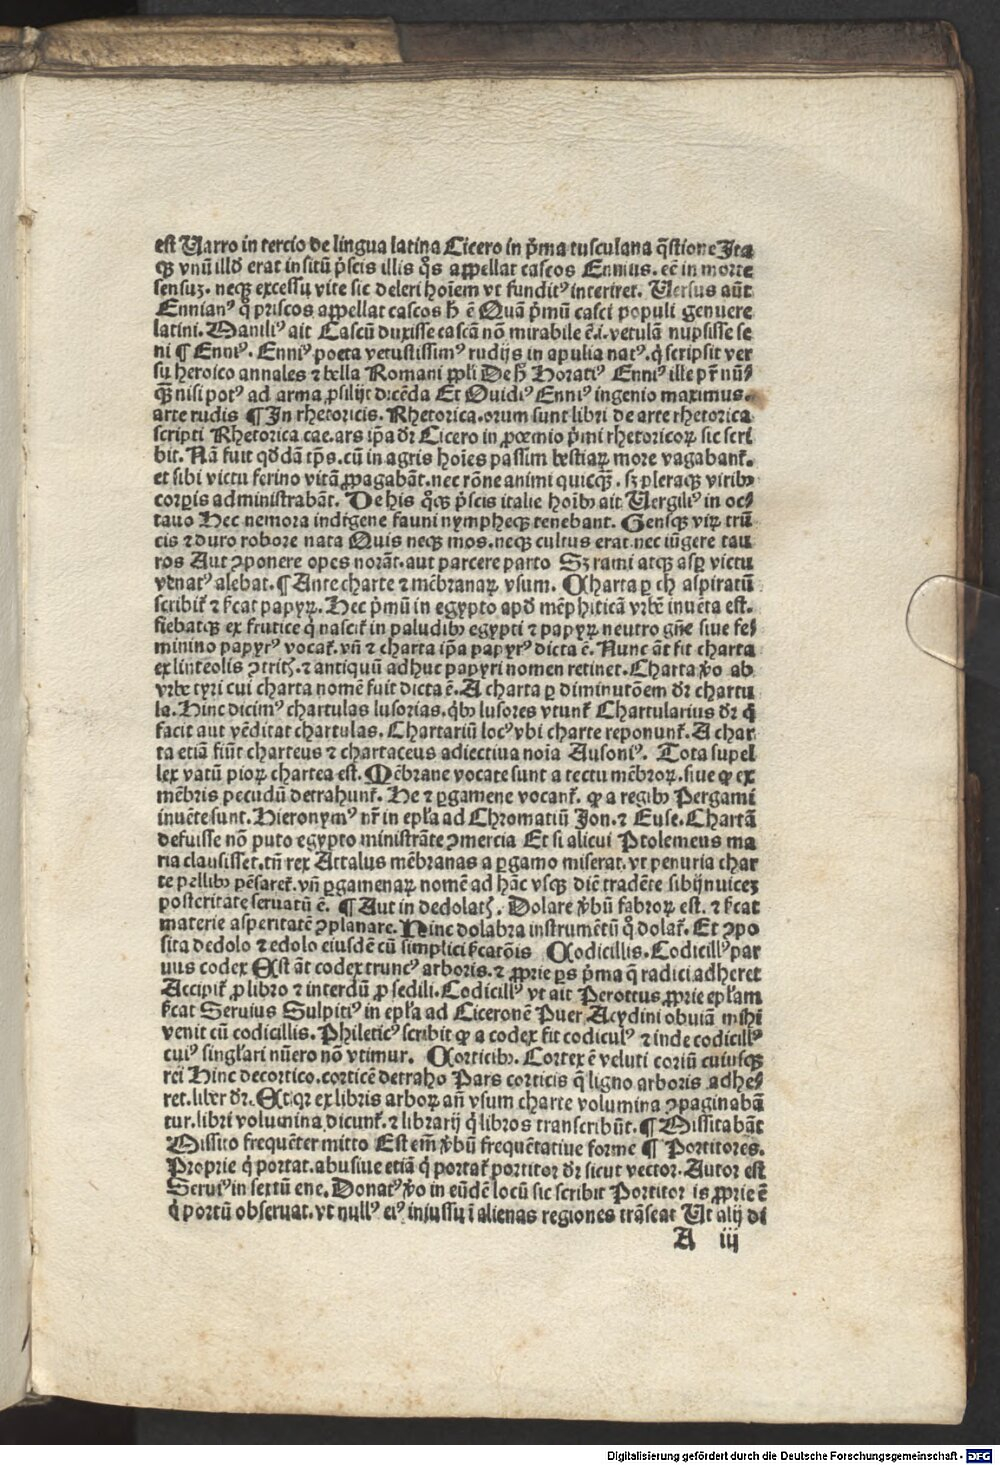 est Varro in tercio de lingua latina Cicero in p̃ma tusculana q̃stione Ita
qꝫ vnũ illđ erat insitũ p̃scis illis q̊s appellat cascos Ennius. eē in morte
sensuꝫ. neqꝫ excessu vite sic deleri hoĩem vt fundit᷒ interiret. Versus aũt
Ennian᷒ q̇ priscos appellat cascos h̃ ē Quã p̃mũ casci populi genuere
latini. Manili᷒ ait Cascũ duxisse cascã nõ mirabile ē .i. vetulã nupsisse se
ni ¶ Enni᷒. Enni᷒ poeta vetustissim᷒ rudijs in apulia nat᷒. q̇ scripsit ver
su heroico annales ⁊ bella Romani ppl̃i De h̃ Horati᷒ Enni᷒ ille pr̃ nũ⸗
qꝫ nisi pot᷒ ad arma ꝓsilijt dicēda Et Ouidi᷒ Enni᷒ ingenio maximus.
arte rudis ¶ In rhetoricis. Rhetorica .orum sunt libri de arte rhetorica
scripti Rhetorica cae. ars ip̃a dr̃ Cicero in proemio p̃mi rhetoricoꝝ sic scri
bit. Nã fuit qđdã tp̃s. cũ in agris hoĩes passim bestiaꝝ more vagabant᷑.
et sibi victu ferino vitã ꝓpagabãt. nec rõne animi quicqꝫ. sꝫ pleraqꝫ virib᷒
corꝑis administrabãt. De his q̊qꝫ p̃scis italie hoĩb᷒ ait Vergili᷒ in oc⸗
tauo Hec nemora indigene fauni nympheqꝫ tenebant. Gensqꝫ viꝝ trũ
cis ⁊ duro robore nata Quis neqꝫ mos. neqꝫ cultus erat. nec iũgere tau
ros Aut ꝯponere opes norãt. aut parcere parto Sꝫ rami atqꝫ asꝑ victu
venat᷒ alebat. ¶ Ante charte ⁊ mēbranaꝝ vsum. Charta ꝑ ch aspiratũ
scribit᷑ ⁊ fi̾cat papyꝝ. Hec p̃mũ in egypto apđ mēphiticã vrbē inuēta est.
fiebatqꝫ ex frutice q̇ nascit᷑ in paludib᷒ egypti ⁊ papyꝝ neutro gñe siue fe⸗
minino papyr᷒ vocat᷑. vñ ⁊ charta ip̃a papyr᷒ dicta ē. Nunc āt fit charta
ex linteolis ꝯtrit{is}. ⁊ antiquũ adhuc papyri nomen retinet. Charta ỽo ab
vrbe tyri cui charta nomē fuit dicta ē. A charta ꝑ diminutõem dr̃ chartu
la. Hinc dicim᷒ chartulas lusorias. q̇b᷒ lusores vtunt᷑ Chartularius dr̃ q̇
facit aut vēditat chartulas. Chartariũ loc᷒ vbi charte reponunt᷑. A char
ta etiã fiũt charteus ⁊ chartaceus adiectiua noĩa Ausoni᷒. Tota supel
lex vatũ pioꝝ chartea est. Mēbrane vocate sunt a tectu mēbroꝝ. siue ꝙ ex
mēbris pecudũ detrahunt᷑. He ⁊ ꝑgamene vocant᷑. ꝙ a regib᷒ Pergami
inuēte sunt. Hieronym᷒ nr̃ in epl̃a ad Chromatiũ Jon. ⁊ Euse. Chartã
defuisse nõ puto egypto ministrãte ꝯmercia Et si alicui Ptolemeus ma
ria clausisset. tñ rex Attalus mēbranas a ꝑgamo miserat. vt penuria char
te pellib᷒ pēsaret᷑. vñ ꝑgamenaꝝ nomē ad hãc vsqꝫ diē tradēte sibijnuiceꝫ
posteritate seruatũ ē. ¶ Aut in dedolat{is}. Dolare ỽbũ fabroꝝ est. ⁊ fi̾cat
materie asperitatē ꝯplanare. Hinc dolabra instrumētũ q̊ dolat᷑. Et ꝯpo
sita dedolo ⁊ edolo eiusdē cũ simplici fi̾catõis Codicillis. Codicill᷒ par
uus codex Est āt codex trunc᷒ arboris. ⁊ ꝓprie ꝑs p̃ma q̃ radici adheret
Accipit᷑ ꝓ libro ⁊ interdũ ꝓ sedili. Codicill᷒ vt ait Perottus ꝓprie epl̃am
fi̾cat Seruius Sulpiti᷒ in epl̃a ad Ciceronē Puer Acydini obuiã mihi
venit cũ codicillis. Philetic᷒ scribit ꝙ a codex fit codicul᷒ ⁊ inde codicill᷒
cui᷒ singl̃ari nũero nõ vtimur. Corticib᷒. Cortex ē veluti coriũ cuiusqꝫ
rei Hinc decortico. corticē detraho Pars corticis q̃ ligno arboris adhe⸗
ret. liber dr̃. Et qꝛ ex libris arboꝝ añ vsum charte volumina ꝯpaginabã
tur. libri volumina dicunt᷑. ⁊ librarij q̇ libros transcribũt. ¶ Missitabãt
Missito frequēter mitto Est em̃ ỽbũ frequētatiue forme ¶ Portitores.
Proprie q̇ portat. abusiue etiã q̇ portat᷑ portitor dr̃ sicut vector. Autor est
Serui᷒ in sextũ ene. Donat᷒ ỽo in eũdē locũ sic scribit Portitor is ꝓprie ē
q̇ portũ obseruat. vt null᷒ ei᷒ iniussu ī alienas regiones trãseat Vt alij di
A iij
Digitalisierung gefördert durch die Deutsche Forschungsgemeinschaft - DFG